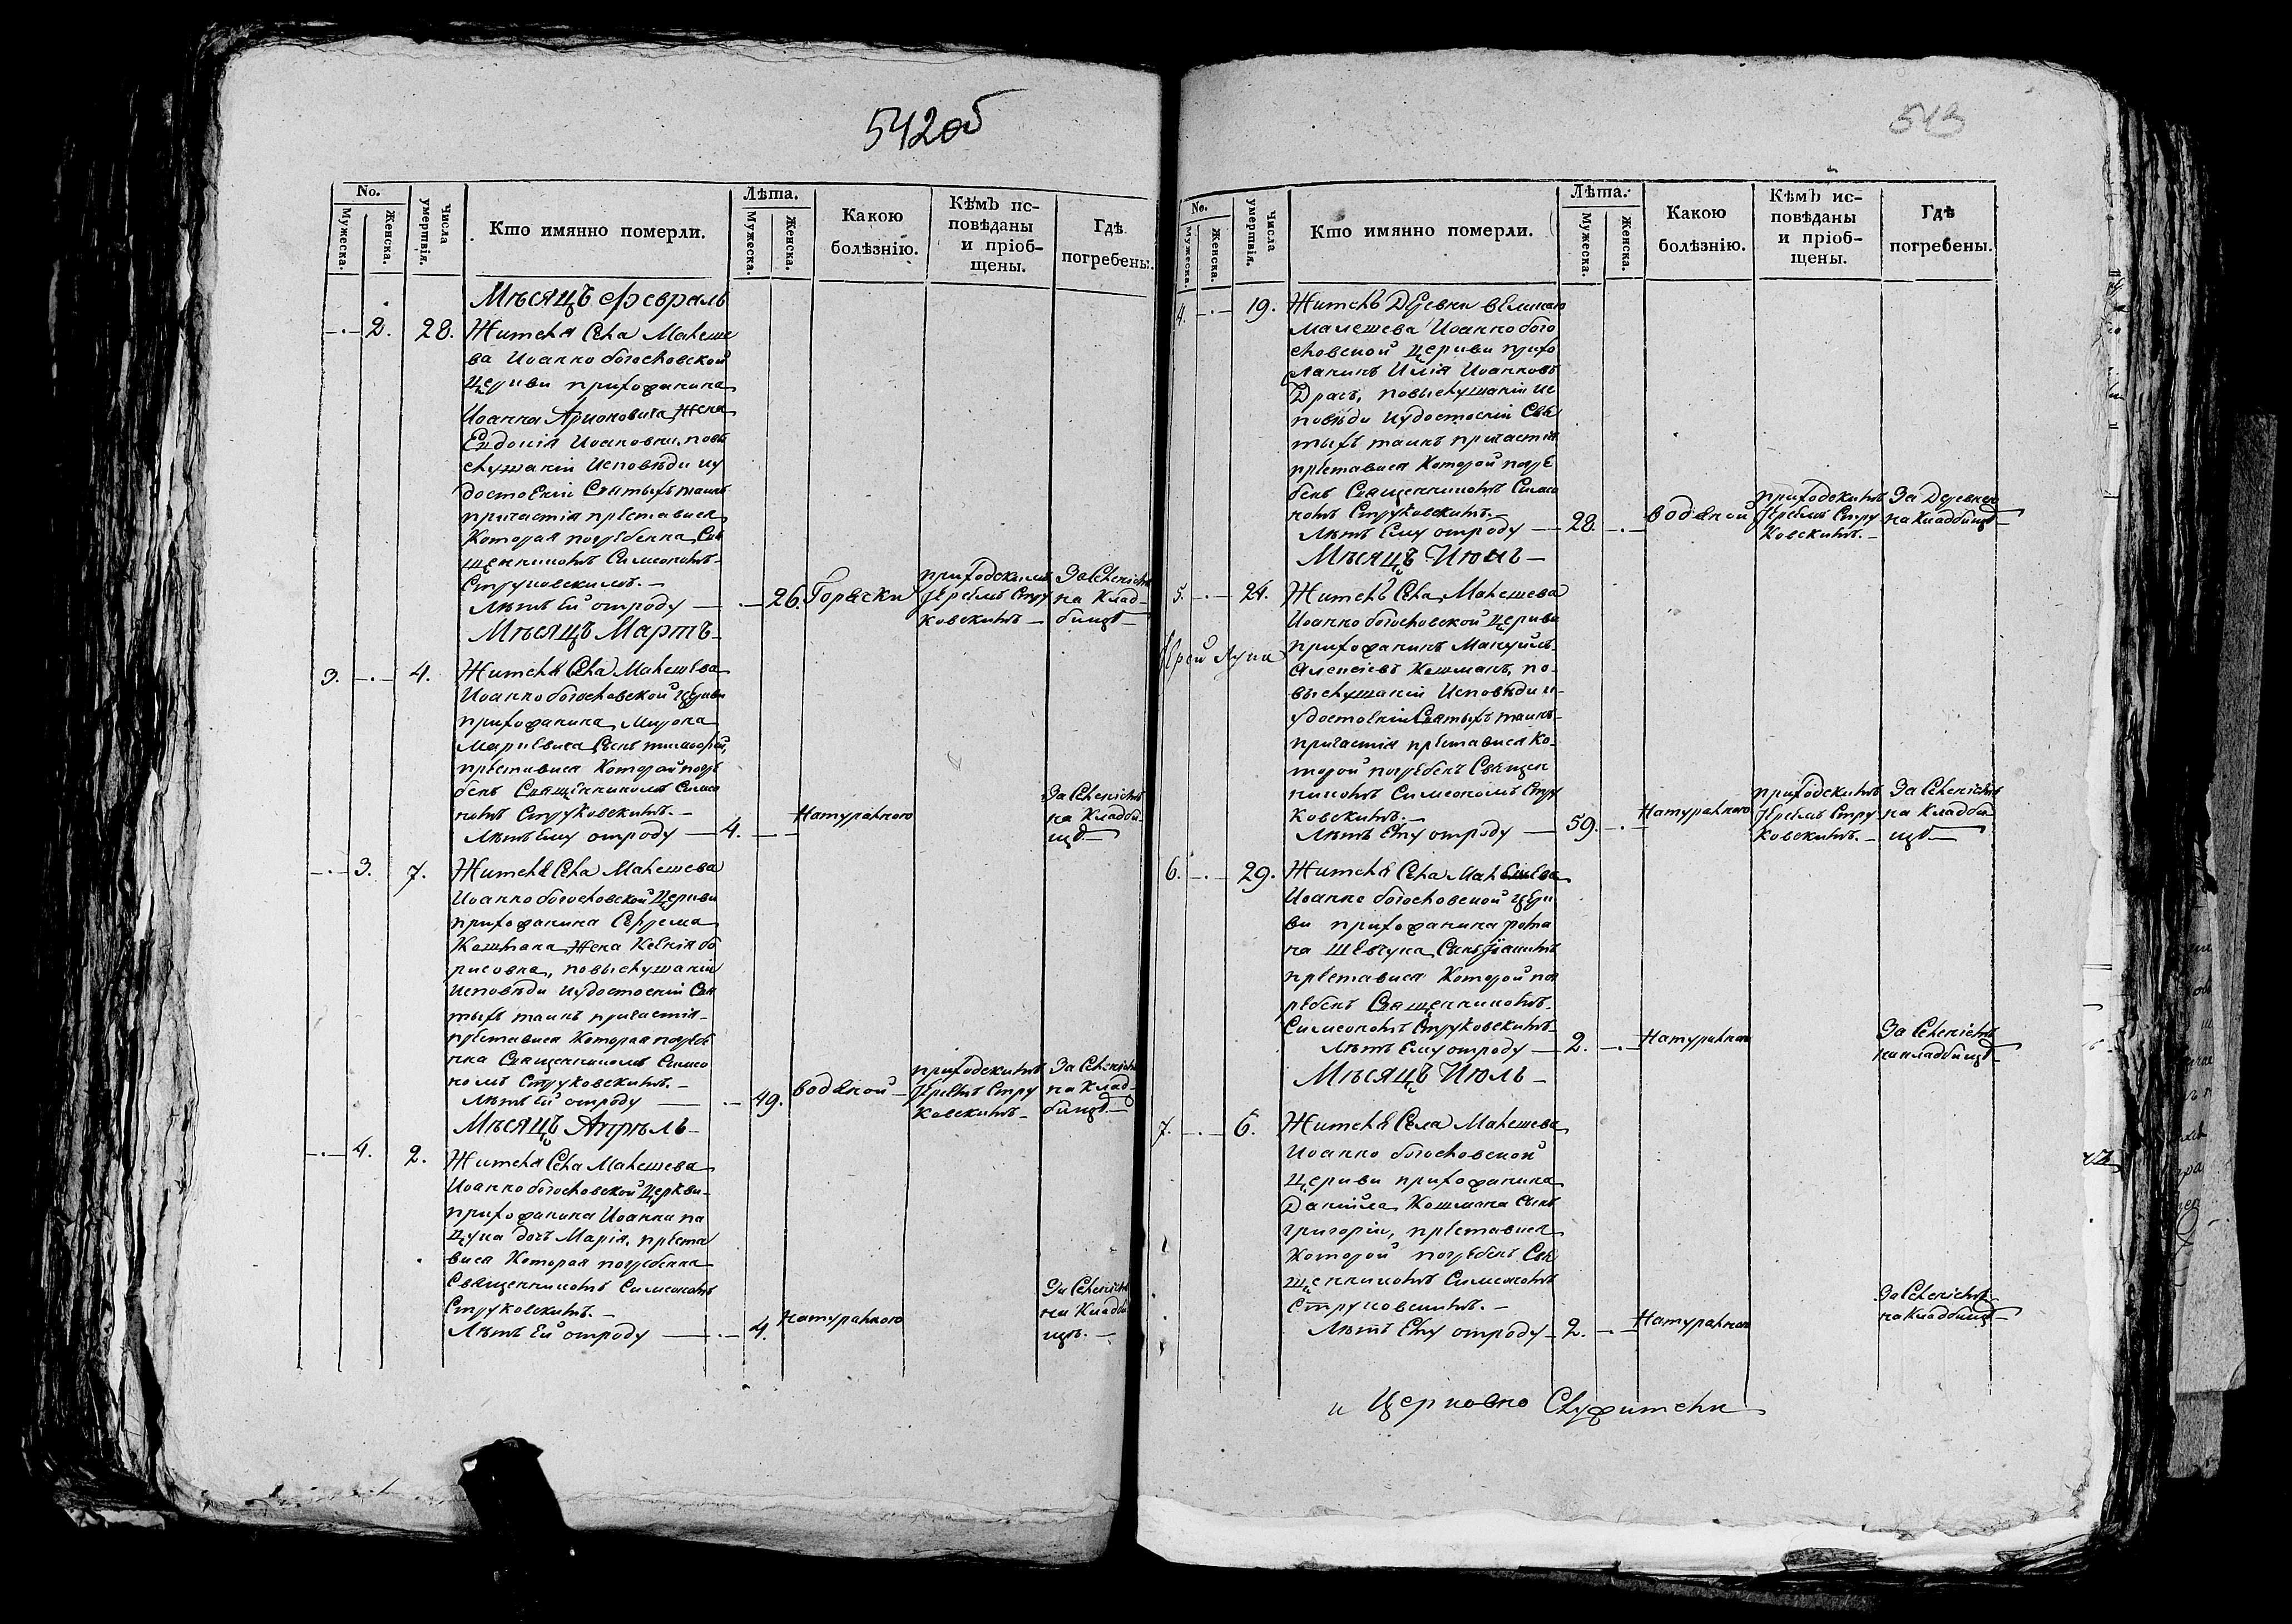 542об
No.
Мужеска.
Женска.
Числа умертвія.
Кто имянно померли.
Лѣта.
Мужеска.
Женска.
Какою болѣзнію.
Кѣмъ ис-
повѣданы
и пріоб-
щены.
Гдѣ
погребены.
Мѣсяцъ февраль
2. 28. Жителя Села Малеше
ва Иоанно богословской
Церкви прихожанина
Иоанна жена
Иоановна, повы
слушаніи Исповѣди иу
достоеніи Святыхъ таинъ
причастія преставися
Которая погребенна Свя
щенникомъ Симеономъ
Струковскимъ. —
Лѣтъ Ей отроду — 26. Горячки
приходскимъ
Іереемъ Стру
ковскимъ —
За Селеніемъ
на Клад-
бищѣ —
Мѣсяцъ Мартъ
3. 4. Жителя Села Малешева
Иоанно богословской Церкви
прихожанина Мирона
Сынъ
преставися Которой погре
бенъ Священникомъ Симео
номъ Струковскимъ. —
Лѣтъ Ему отроду — 4. Натурально
За Селеніемъ
на Кладби-
щѣ —
3. 7. Жителя Села Малешева
Иоанно богословской Церкви
прихожанина Ефрема
Кошмана Жена Ксенія бо
рисовна, повыслушаніи
Исповѣди иудостоеніи Свя
тыхъ таинъ причастія
преставися Которая погребе
нна Священникомъ Симео
номъ Струковскимъ. —
Лѣтъ Ей отроду — 49. водяной
приходскимъ
Іереемъ Стру
ковскимъ —
За Селеніемъ
на Клад-
бищѣ —
Мѣсяцъ Апрѣль
4. 2. Жителя Села Малешева
Иоанно богословской Церкви
прихожанина Иоанна па
цука дочь Марія, преста
вися Которая погребенна
Священникомъ Симеономъ
Струковскимъ. —
Лѣтъ Ей отроду — 4. Натурально
За Селеніемъ
на Кладби
щѣ. —
543
No.
Мужеска.
Женска.
Числа умертвія.
Кто имянно померли.
Лѣта.
Мужеска.
Женска.
Какою болѣзнію.
Кѣмъ ис-
повѣданы
и пріоб-
щены.
Гдѣ
погребены.
4. 19. Житель Деревни
Малешева Иоанно бого
словской Церкви прихо
жанинъ Илія Иоанновъ
Драсъ, повыслушаніи ис
повѣди иудостоеніи Свя
тыхъ таинъ причастія
преставися Которой погре
бенъ Священникомъ Симео
номъ Струковскимъ. —
Лѣтъ Ему отроду — 28. водяной
приходскимъ
Іереемъ Стру
ковскимъ. —
За Деревнею
на Кладбищѣ —
Мѣсяцъ Июнь —
5. 24. Житель Села Малешева
Иоанно богословской Церкви
прихожанинъ Мануилъ
Алексіевъ Кошманъ, по-
выслушаніи Исповѣди и-
удостоеніи Святыхъ таинъ
причастія преставися Ко-
торой погребенъ Священ
никомъ Симеономъ Стру
ковскимъ. —
Лѣтъ Ему отроду — 59. Натурально
приходскимъ
Іереемъ Стру
ковскимъ. —
За Селеніемъ
на Кладби
щѣ —
Іерей Лука
6. 29. Жителя Села Малешева
Иоанно богословской церк
ви прихожанина рома
на Шевчука Сынъ
преставися Которой пог
ребенъ Священникомъ
Симеономъ Струковскимъ
Лѣтъ Ему отроду — 2. Натурально
За Селеніемъ
на кладбищѣ —
Мѣсяцъ Июль —
7. 6. Жителя Села Малешева
Иоанно богословской
Церкви прихожанина
Даніила Кошмана Сынъ
григорій, преставися
Которой погребенъ Свя
щенникомъ Симеономъ
Струковскимъ. —
Лѣтъ Ему отроду — 2. Натурально
За Селеніемъ
на Кладбищѣ —
и Церковно Служители